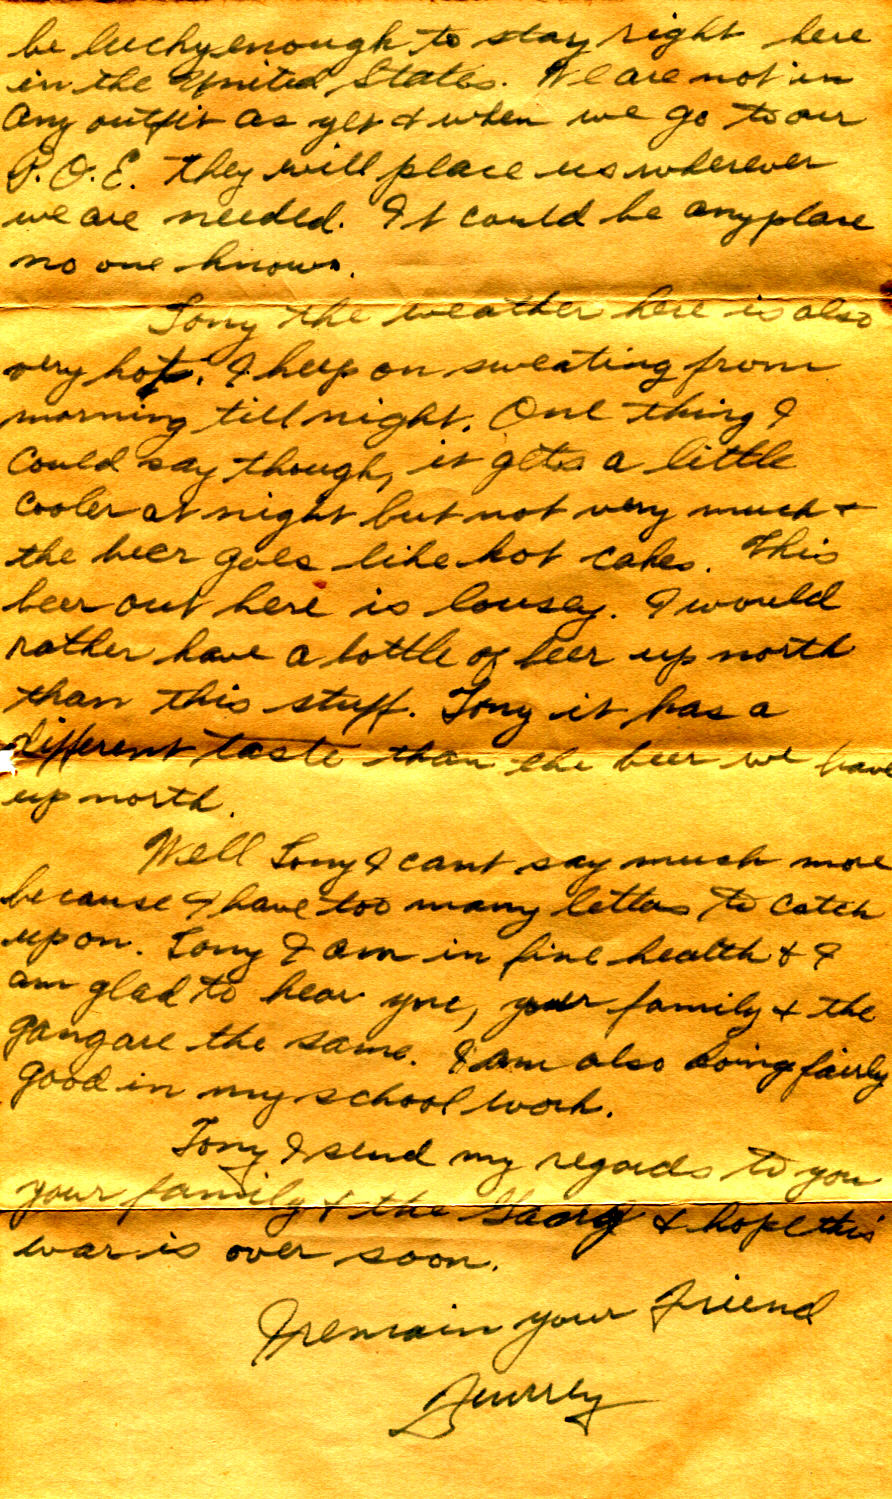 be lucky enough to stay right here
in the United States. We are not in
any outfit as yet & when we go to our
P.O.E. they will place us wherever
we are needed. It could be anyplace
no one knows.
Tony the weather here is also
very hot. I keep on sweating from
morning till night. One thing I
could say though, it gets a little
cooler at night but not very much &
the beer goes like hot cakes. This
beer out here is lousey. I would
rather have a bottle of beer up north
than this stuff. Tony it has a
different taste than the beer we have
up north.
Well Tony I cant say much more
because I have too many letters to catch
upon. Tony I am in fine health & I
am glad to hear you, your family & the
gang are the same. I am also doing fairly
good in my school work.
Tony I send my regards to you
your family & the Gang & hope this
war is over soon.
I remain your Friend